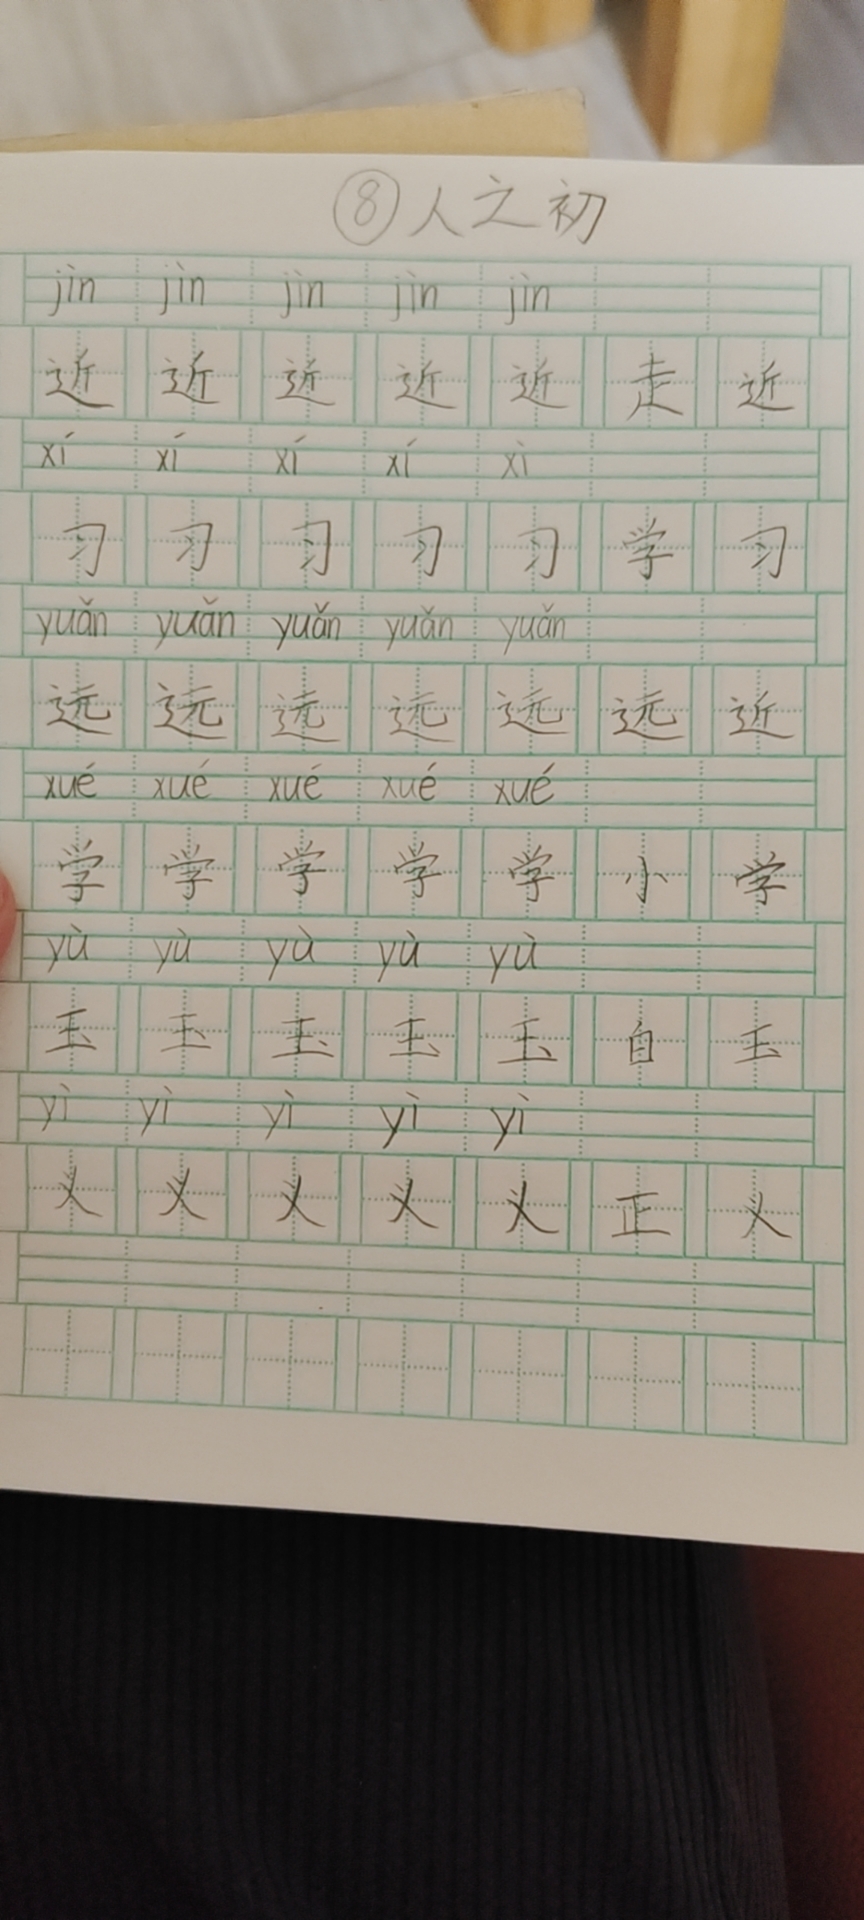 ⑧人之初
jìn jìn jìn jìn jìn
近 近 近 近 近 走 近
xí xí xí xí xì
习 习 习 习 习 学 习
yuǎn yuǎn yuǎn yuǎn yuǎn
远 远 远 远 远 远 近
xué xué xué xué xué
学 学 学 学 学 小 学
yù yù yù yù yù
玉 玉 玉 玉 玉 白 玉
yì yì yì yì yì
义 义 义 义 义 正 义